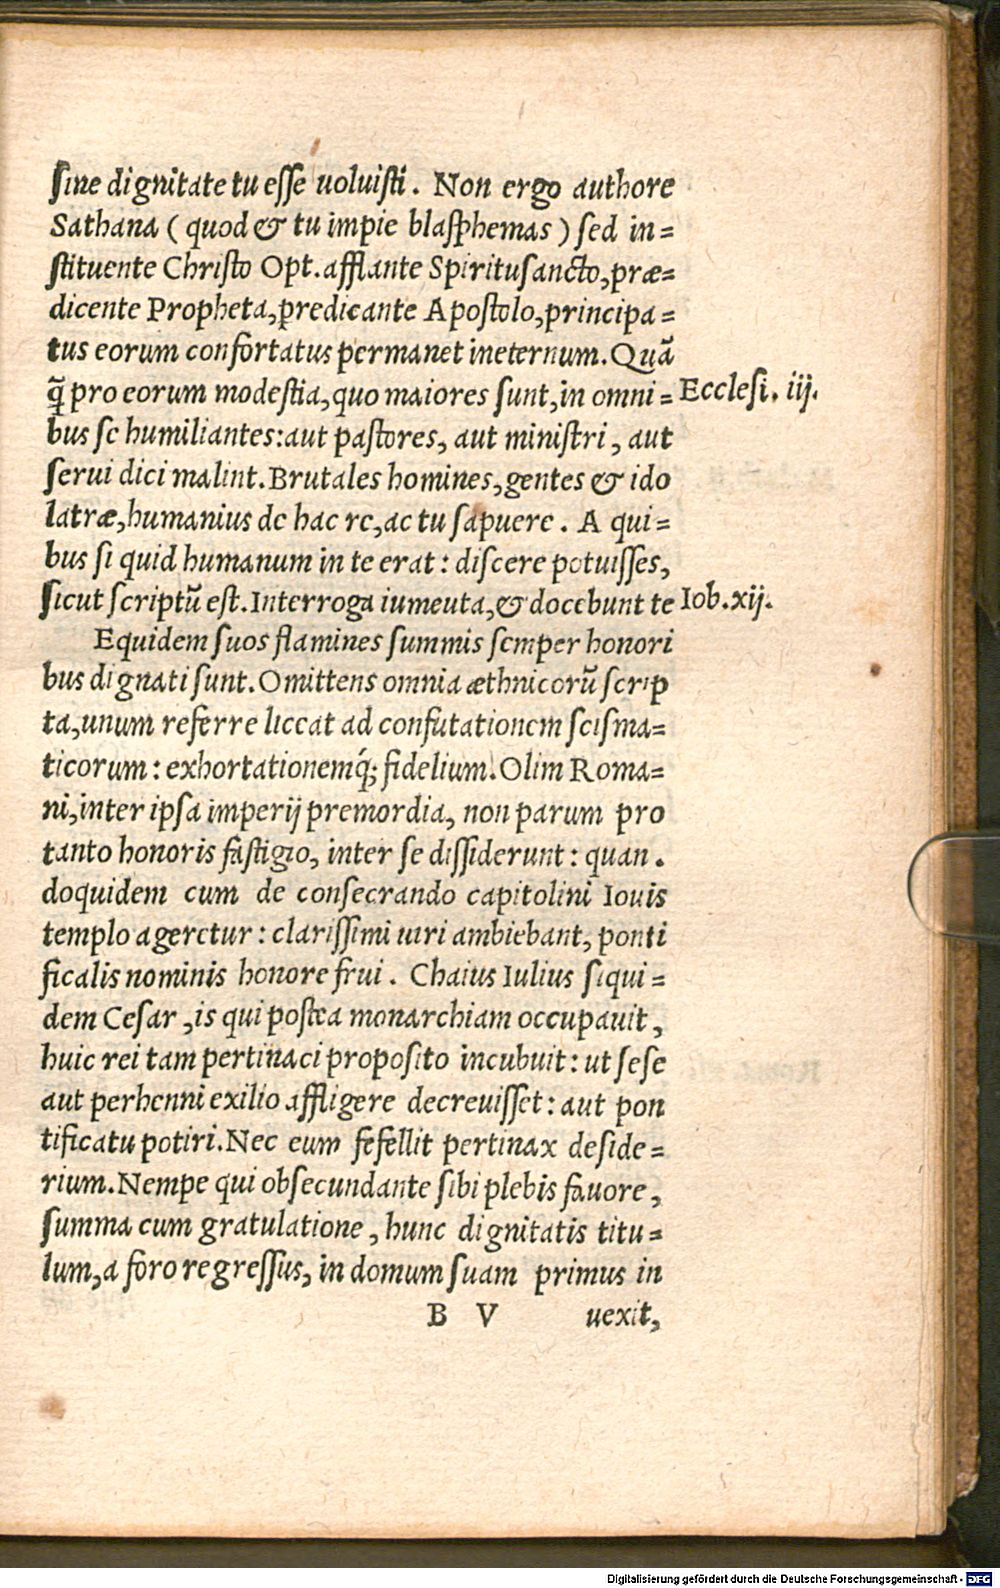 ſine dignitate tu eſſe uoluiſti. Non ergo authore
Sathana (quod & tu impie blaſphemas) ſed in=
ſtituente Chriſto Opt. afflante Spirituſancto, præ=
dicente Propheta, predicante Apoſtolo, principa=
tus eorum confortatus permanet ineternum. Quã
q̃ pro eorum modeſtia, quo maiores ſunt, in omni= Eccleſi. iij.
bus ſe humiliantes: aut paſtores, aut miniſtri, aut
ſerui dici malint. Brutales homines, gentes & ido
latræ, humanius de hac re, ac tu ſapuere. A qui=
bus ſi quid humanum in te erat: diſcere potuiſſes,
ſicut ſcriptũ eſt. Interroga iumeuta, & docebunt te Iob. xij.
Equidem ſuos flamines ſummis ſemper honori
bus dignati ſunt. Omittens omnia æthnicorũ ſcrip
ta, unum referre liceat ad confutationem ſciſma=
ticorum: exhortationemq́; fidelium. Olim Roma=
ni, inter ipſa imperij premordia, non parum pro
tanto honoris faſtigio, inter ſe diſſiderunt: quan.
doquidem cum de conſecrando capitolini Iouis
templo ageretur: clariſſimi uiri ambiebant, ponti
ficalis nominis honore frui. Chaius Iulius ſiqui=
dem Ceſar, is qui poſtea monarchiam occupauit,
huic rei tam pertinaci propoſito incubuit: ut ſeſe
aut perhenni exilio affligere decreuiſſet: aut pon
tificatu potiri. Nec eum fefellit pertinax deſide=
rium. Nempe qui obſecundante ſibi plebis fauore,
ſumma cum gratulatione, hunc dignitatis titu=
lum, a foro regreſſus, in domum ſuam primus in
B V uexit,
Digitalisierung gefördert durch die Deutsche Forschungsgemeinschaft - DFG